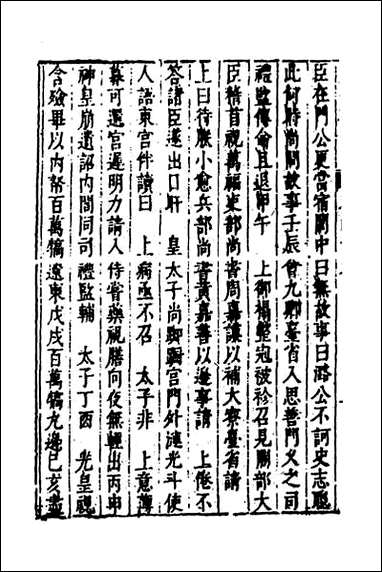 臣在門公更當宿閣中曰無故事曰潞公不訶史志聰
此何時尚問故事壬辰會九卿臺省入思善門又之司
禮監傳俞旦退甲午　上御榻整冠被袗召見閣部大
臣稽首視萬福吏部尚書周嘉謨以補大寮臺省請
上曰待朕小愈兵部尚書黃嘉善以邊事請　上倦不
答諸臣遂出口旰　皇太子尚踟躕宮門外漣光斗使
人語東宮伴讀曰　上病亟不召　太子非　上意薄
暮可還宮遲明力請入侍嘗藥視膳向夜無輕出丙申
神皇崩遺詔內閣同司禮監輔　太子丁酉　光皇視
含殮畢以內帑百萬犒遼東戊戌百萬犒九邊己亥盡